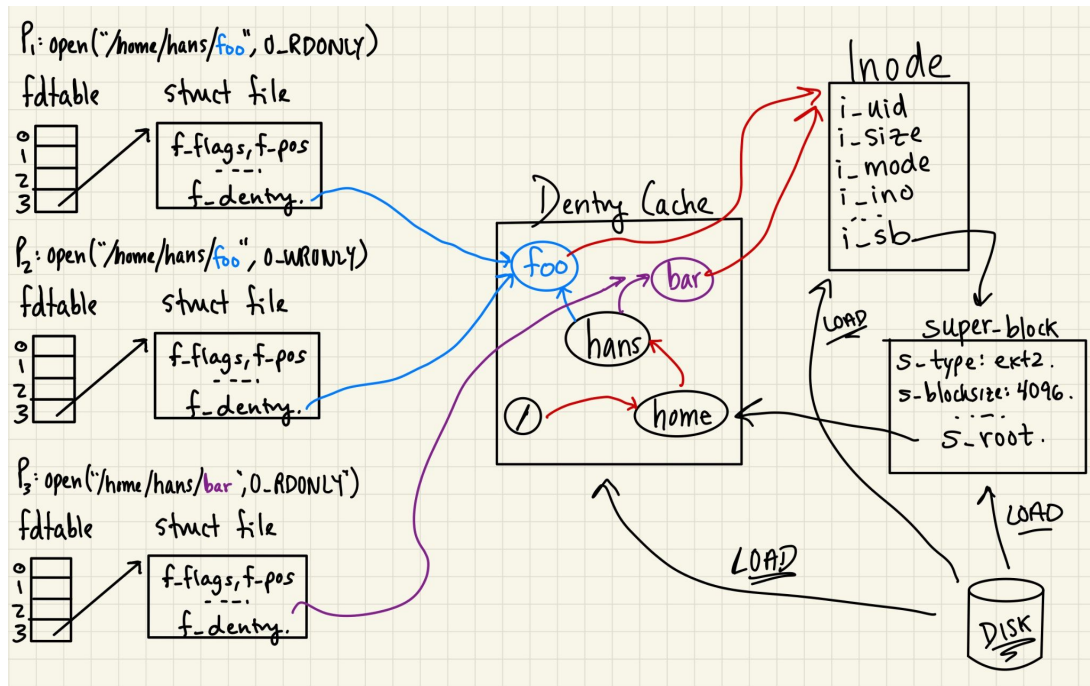 P₁: open("/home/hans/foo", O_RDONLY)
fdtable struct file
0
1
2
3
f_flags, f-pos
f_dentry.
P₂: open("/home/hans/foo", O_WRONLY)
fdtable struct file
0
1
2
3
f_flags, f-pos
f_dentry.
P₃: open("/home/hans/bar", O_RDONLY")
fdtable struct file
0
1
2
3
f_flags, f-pos
f_dentry.
Dentry Cache
foo
bar
hans
/
home
Inode
i_uid
i_size
i_mode
i_ino
i_sb
super-block
s-type: ext2.
s-blocksize: 4096.
s_root.
LOAD
LOAD
LOAD
DISK